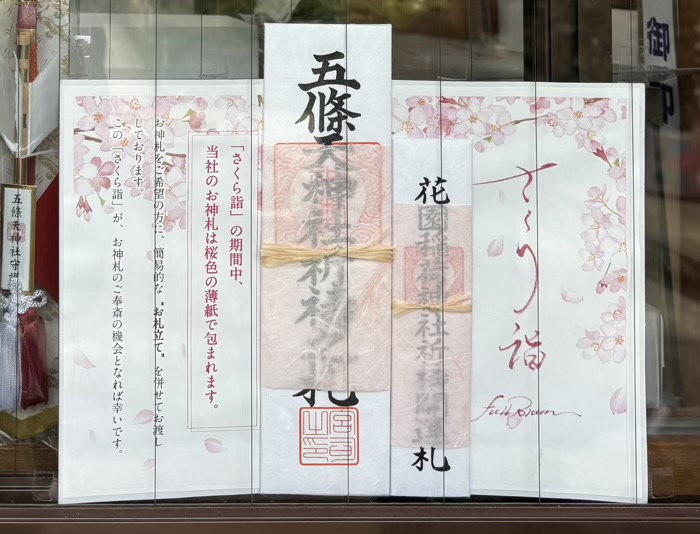 さくら詣
「さくら詣」の期間中、
当社のお神札は桜色の薄紙で包まれます。
お神札をご希望の方に、簡易的な〝お札立て〟を併せてお渡し
しております。
この「さくら詣」が、お神札のご奉斎の機会となれば幸いです。
五條天神社祈祷神札
花園稲荷神社祈祷神札
五條天神社守護